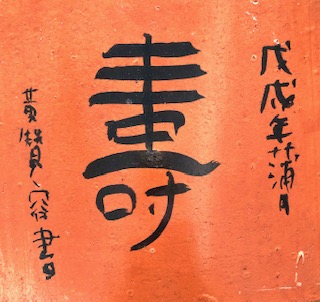 戊戌年蒲月
壽
黃 容書